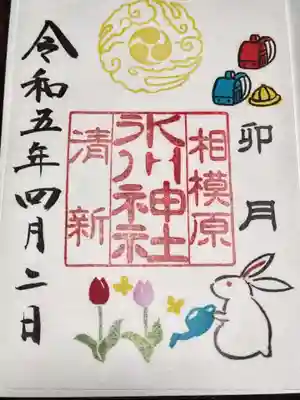 卯月
相模原
氷川神社
清新
令和五年四月二日